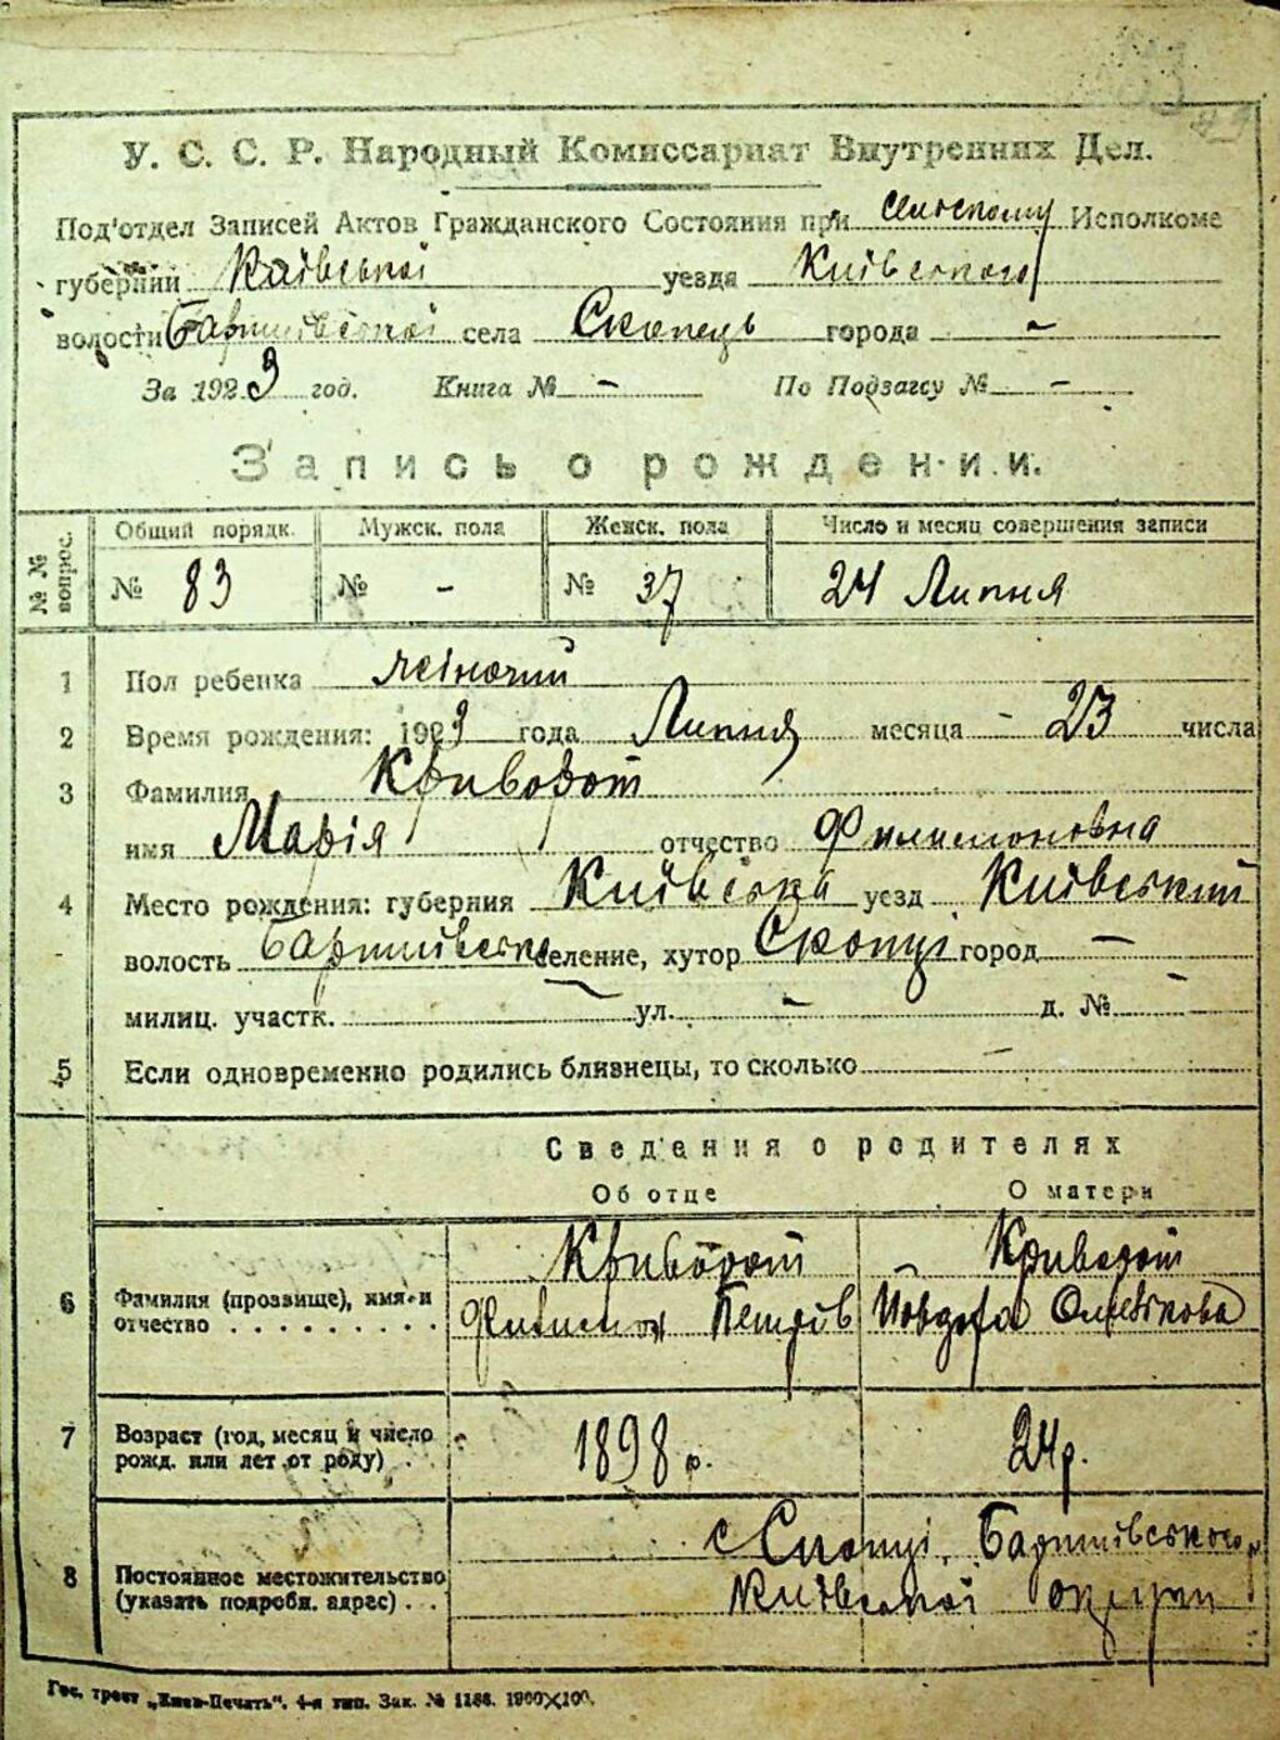 У. С. С. Р. Народный Комиссариат Внутренних Дел.
Под'отдел Записей Актов Гражданского Состояния при Сільському Исполкоме
губернии Київської уезда Київського
волости Баришівської села Скопець города -
За 1923 год. Книга № - По Подзагсу № -
Запись о рождении.
№№ вопрос. Общий порядк. Мужск. пола Женск. пола Число и месяц совершения записи
№ 83 № - № 37 24 Липня
1 Пол ребенка жіночий
2 Время рождения: 1923 года Липня месяца - 23 числа
3 Фамилия Криворот
имя Марія отчество Филимоновна
4 Место рождения: губерния Київська уезд Київський
волость Баришівська селение, хутор Скопці город -
милиц. участк. - ул. - д. № -
5 Если одновременно родились близнецы, то сколько -
Сведения о родителях
Об отце О матери
6 Фамилия (прозвище), имя и отчество . . . . . . . . .
Криворот - Криворот
Филимон Петрів Явдоха
7 Возраст (год, месяц и число рожд. или лет от роду) . .
1898 р. 24 р.
8 Постоянное местожительство (указать подробн. адрес) . . .
с Скопці, Баришівського р
Київської округи
Гос. трест „Киев-Печать“. 4-я тип. Зак. № 1186. 1900×100.